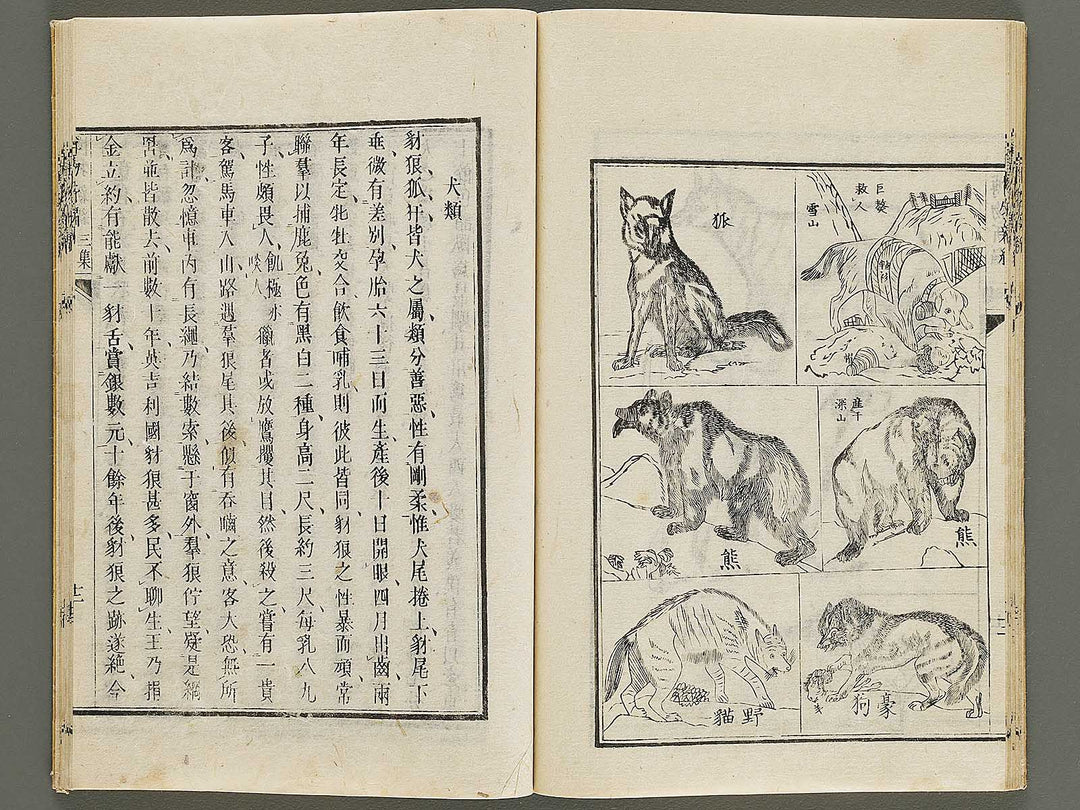 巨獒
救人
雪山
狐
產于
深山
熊
熊
豪狗
野貓
犬類
豺狼狐犴皆犬之屬類分善惡性有剛柔惟犬尾捲上豺尾下
垂微有差別孕胎六十三日而生產後十日開眼四月出齒兩
年長定牝牡交合飲食哺乳則彼此皆同豺狼之性暴而頑常
聯羣以捕鹿兔色有黑白二種身高二尺長約三尺每乳八九
子性頗畏人飢極亦啖人獵者或放鷹攫其目然後殺之嘗有一貴
客駕馬車入山路遇羣狼尾其後似有吞嚙之意客大恐無所
爲計忽憶車內有長繩乃結數索懸于窗外羣狼佇望疑是網
罟並皆散去前數十年英吉利國豺狼甚多民不聊生王乃捐
金立約有能獻一豺舌賞銀數元十餘年後豺狼之跡遂絕今
三集
十二